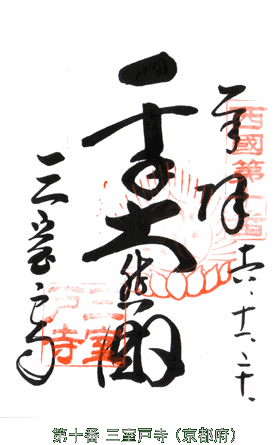 西國第十番
奉拝
千手大悲閣
三室戸寺
三室戸寺
第十番 三室戸寺（京都府）